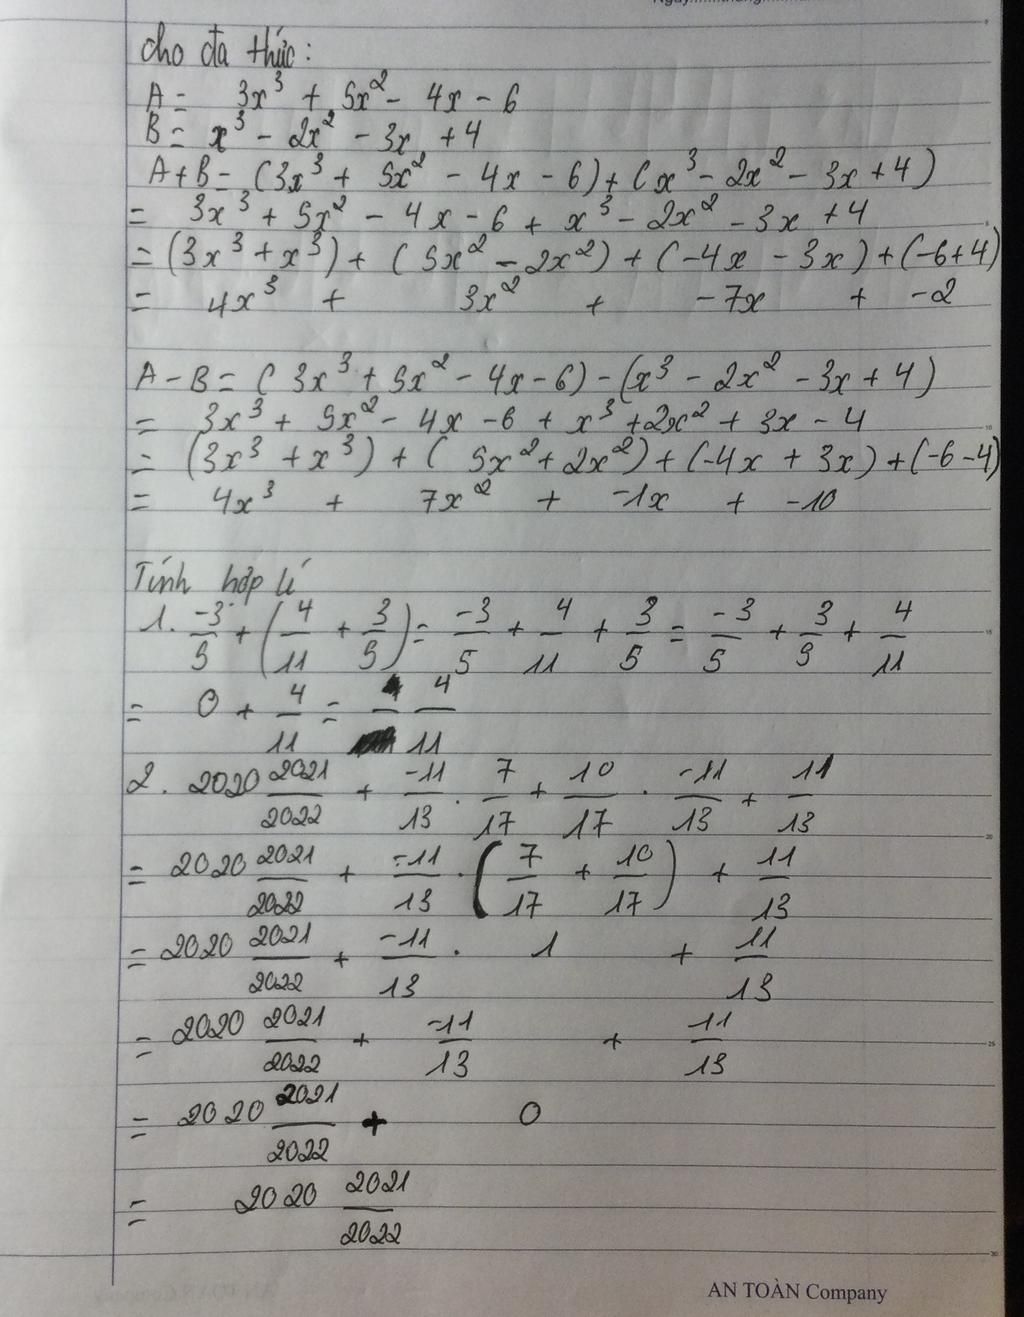 cho đa thức:
A = 3x³ + 5x² - 4x - 6
B = x³ - 2x² - 3x + 4
A+B = (3x³ + 5x² - 4x - 6) + (x³ - 2x² - 3x + 4)
= 3x³ + 5x² - 4x - 6 + x³ - 2x² - 3x + 4
= (3x³ + x³) + (5x² - 2x²) + (-4x - 3x) + (-6+4)
= 4x³ + 3x² + -7x + -2
A - B = (3x³ + 5x² - 4x - 6) - (x³ - 2x² - 3x + 4)
= 3x³ + 5x² - 4x - 6 + x³ + 2x² + 3x - 4
= (3x³ + x³) + (5x² + 2x²) + (-4x + 3x) + (-6-4)
= 4x³ + 7x² + -1x + -10
Tính hợp lí
1. -3/5 + (4/11 + 3/5) = -3/5 + 4/11 + 3/5 = -3/5 + 3/5 + 4/11
= 0 + 4/11 = 4/11
2. 2020 2021/2022 + -11/13 . 7/17 + 10/17 . -11/13 + 11/13
= 2020 2021/2022 + -11/13 . (7/17 + 10/17) + 11/13
= 2020 2021/2022 + -11/13 . 1 + 11/13
= 2020 2021/2022 + -11/13 + 11/13
= 2020 2021/2022 + 0
= 2020 2021/2022
AN TOÀN Company